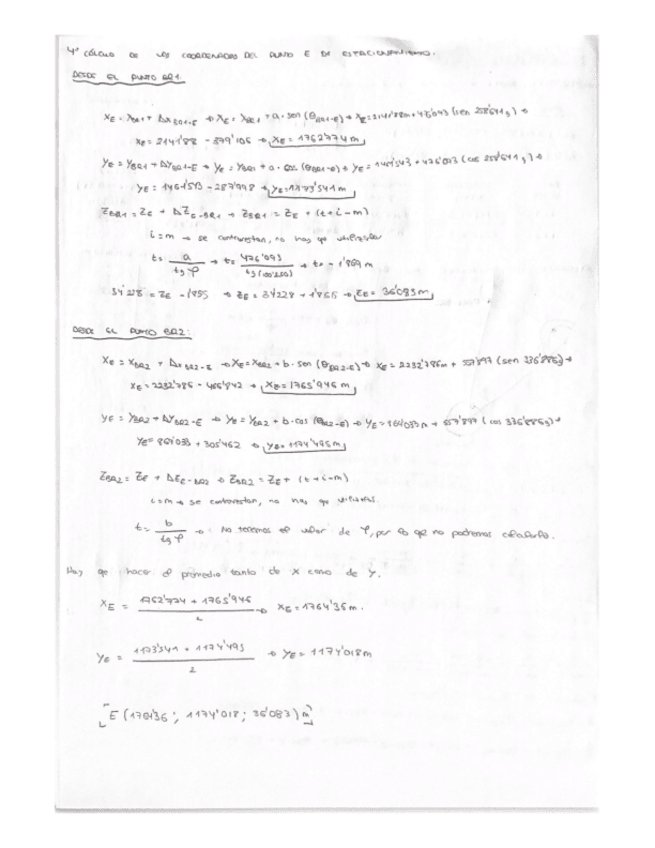 4º CÁLCULO DE LAS COORDENADAS DEL PUNTO E DE ESTACIONAMIENTO.
DESDE EL PUNTO BR1.
XE = XBR1 + ΔXBR1-E → XE = XBR1 + a · sen (θBR1-E) →
XE = 2141'88 - 379'106 → XE = 1762'774 m
YE = YBR1 + ΔYBR1-E → YE = YBR1 + a · cos (θBR1-E) →
YE = 1461'513 - 287'998 → YE = 1173'541 m
ZBR1 = ZE + ΔZE-BR1 → ZBR1 = ZE + (t+i-m)
i=m → se contrarrestan, no hay que utilizarlas
t = a / tg φ → t = 476'093 / → t = -1'869 m
34'228 = ZE - 1'855 → ZE = 34'228 + 1'855 → ZE = 36'083 m
DESDE EL PUNTO BR2:
XE = XBR2 + ΔXBR2-E → XE = XBR2 + b · sen (θBR2-E) → XE = 2232'786m + 557'897 (sen 336'886g) →
XE = 2232'786 - 466'842 → XE = 1765'946 m
YE = YBR2 + ΔYBR2-E → YE = YBR2 + b · cos (θBR2-E) → YE = 869'033 m + 557'897 (cos 336'886g) →
YE = 869'033 + 305'462 → YE = 1174'495 m
ZBR2 = ZE + ΔZE-BR2 → ZBR2 = ZE + (t+i-m)
i=m → se contrarrestan, no hay que utilizarlas.
t = b / tg φ → No tenemos el valor de φ, por lo que no podremos calcularlo.
Hay que hacer el promedio tanto de X como de Y.
XE = 1762'774 + 1765'946 / 2 → XE = 1764'36 m.
YE = 1173'541 + 1174'495 / 2 → YE = 1174'018 m
[E (1764'36 ; 1174'018 ; 36'083) m]